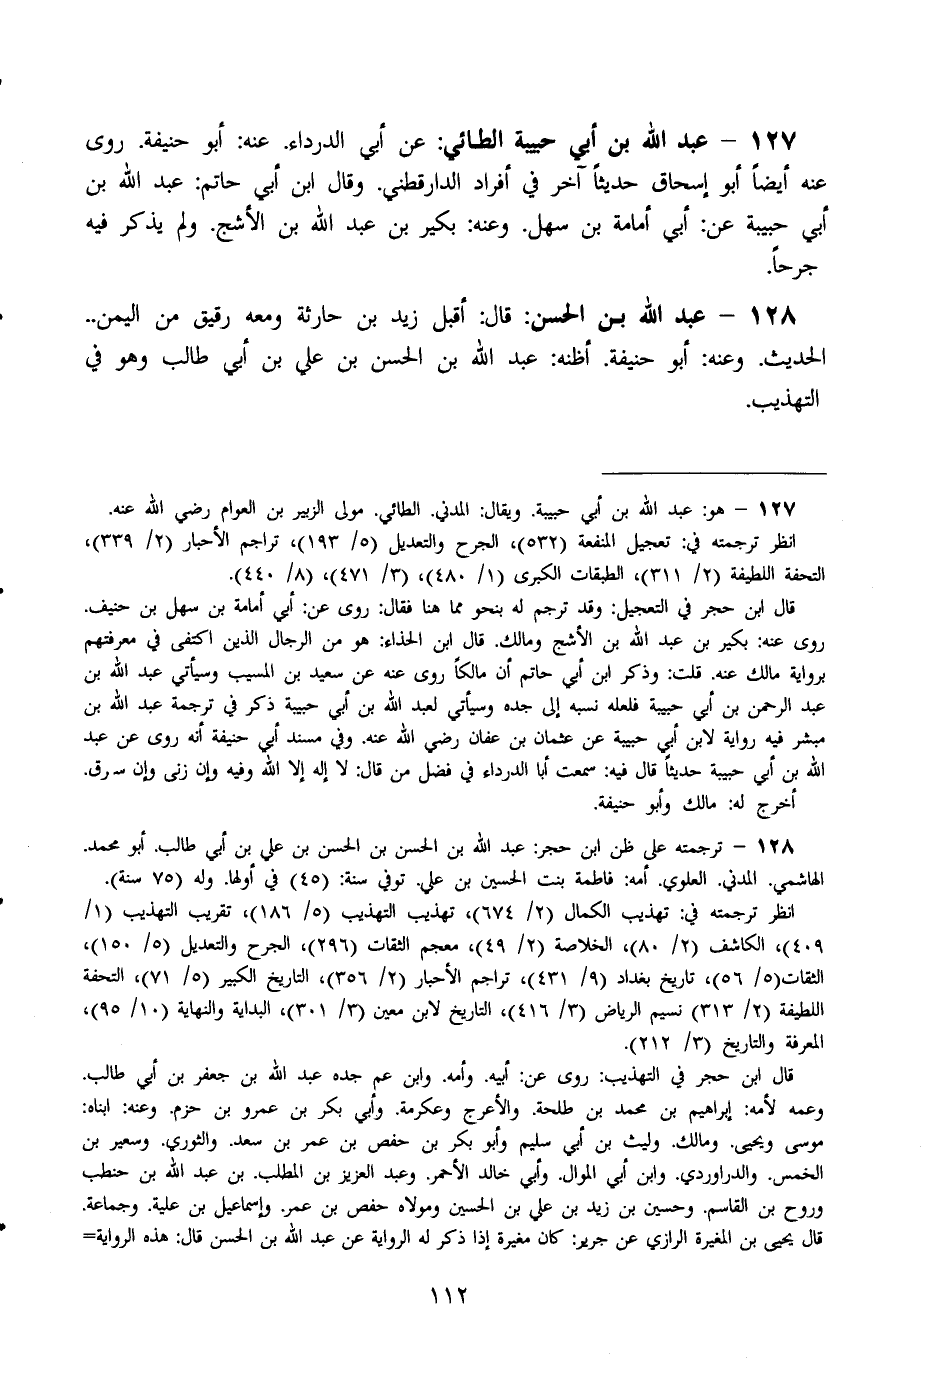 ١٢٧ – عبد الله بن أبي حبيبة الطائي: عن أبي الدرداء. عنه: أبو حنيفة. روى
عنه أيضاً أبو إسحاق حديثاً آخر في أفراد الدارقطني. وقال ابن أبي حاتم: عبد الله بن
أبي حبيبة عن: أبي أمامة بن سهل. وعنه: بكير بن عبد الله بن الأشج. ولم يذكر فيه
جرحاً.
١٢٨ – عبد الله بن الحسن: قال: أقبل زيد بن حارثة ومعه رقيق من اليمن..
الحديث. وعنه: أبو حنيفة. أظنه: عبد الله بن الحسن بن علي بن أبي طالب وهو في
التهذيب.
١٢٧ – هو: عبد الله بن أبي حبيبة. ويقال: المدني. الطائي. مولى الزبير بن العوام رضي الله عنه.
انظر ترجمته في: تعجيل المنفعة (٥٣٢)، الجرح والتعديل (٥/ ١٩٣)، تراجم الأحبار (٢/ ٣٣٩)،
التحفة اللطيفة (٢/ ٣١١)، الطبقات الكبرى (١/ ٤٨٠)، (٣/ ٤٧١)، (٨/ ٤٤٠).
قال ابن حجر في التعجيل: وقد ترجم له بنحو مما هنا فقال: روى عن: أبي أمامة بن سهل بن حنيف.
روى عنه: بكير بن عبد الله بن الأشج ومالك. قال ابن الحذاء: هو من الرجال الذين اكتفى في معرفتهم
برواية مالك عنه. قلت: وذكر ابن أبي حاتم أن مالكاً روى عنه عن سعيد بن المسيب وسيأتي عبد الله بن
عبد الرحمن بن أبي حبيبة فلعله نسبه إلى جده وسيأتي لعبد الله بن أبي حبيبة ذكر في ترجمة عبد الله بن
مبشر فيه رواية لابن أبي حبيبة عن عثمان بن عفان رضي الله عنه. وفي مسند أبي حنيفة أنه روى عن عبد
الله بن أبي حبيبة حديثاً قال فيه: سمعت أبا الدرداء في فضل من قال: لا إله إلا الله وفيه وإن زنى وإن سرق.
أخرج له: مالك وأبو حنيفة.
١٢٨ – ترجمته على ظن ابن حجر: عبد الله بن الحسن بن الحسن بن علي بن أبي طالب. أبو محمد.
الهاشمي. المدني. العلوي. أمه: فاطمة بنت الحسين بن علي. توفي سنة: (٤٥) في أولها. وله (٧٥ سنة).
انظر ترجمته في: تهذيب الكمال (٢/ ٦٧٤)، تهذيب التهذيب (٥/ ١٨٦)، تقريب التهذيب (١/
٤٠٩)، الكاشف (٢/ ٨٠)، الخلاصة (٢/ ٤٩)، معجم الثقات (٢٩٦)، الجرح والتعديل (٥/ ١٥٠)،
الثقات(٥/ ٥٦)، تاريخ بغداد (٩/ ٤٣١)، تراجم الأحبار (٢/ ٣٥٦)، التاريخ الكبير (٥/ ٧١)، التحفة
اللطيفة (٢/ ٣١٣) نسيم الرياض (٣/ ٤١٦)، التاريخ لابن معين (٣/ ٣٠١)، البداية والنهاية (١٠/ ٩٥)،
المعرفة والتاريخ (٣/ ٢١٢).
قال ابن حجر في التهذيب: روى عن: أبيه. وأمه. وابن عم جده عبد الله بن جعفر بن أبي طالب.
وعمه لأمه: إبراهيم بن محمد بن طلحة. والأعرج وعكرمة. وأبي بكر بن عمرو بن حزم. وعنه: ابناه:
موسى ويحيى. ومالك. وليث بن أبي سليم وأبو بكر بن حفص بن عمر بن سعد. والثوري. وسعير بن
الخمس. والدراوردي. وابن أبي الموال. وأبي خالد الأحمر. وعبد العزيز بن المطلب. بن عبد الله بن حنطب
وروح بن القاسم. وحسين بن زيد بن علي بن الحسين ومولاه حفص بن عمر. وإسماعيل بن علية. وجماعة.
قال يحيى بن المغيرة الرازي عن جرير: كان مغيرة إذا ذكر له الرواية عن عبد الله بن الحسن قال: هذه الرواية=
١١٢